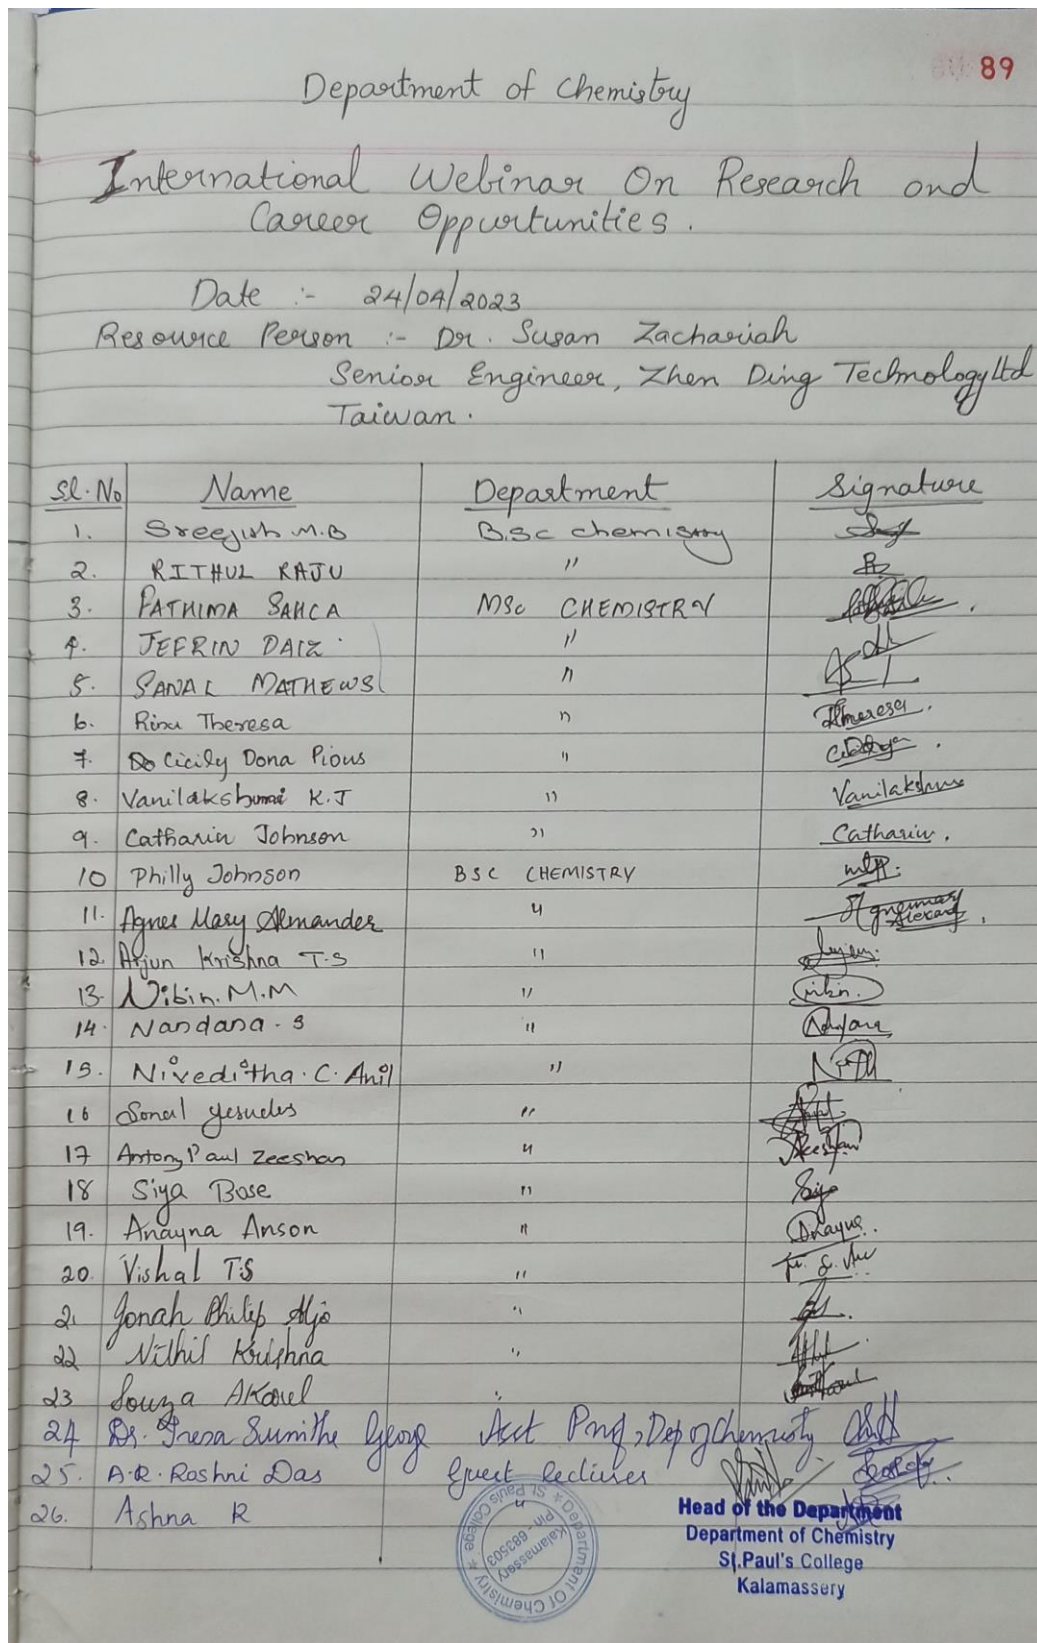 89
Department of Chemistry
International Webinar On Research and
Career Oppurtunities.
Date :- 24/04/2023
Resource Person :- Dr. Susan Zachariah
Senior Engineer, Zhen Ding Technology Ltd
Taiwan.
Sl. No Name Department Signature
1. Sreejish M.B B.Sc chemistry
2. RITHUL RAJU "
3. FATHIMA SAHCA MSc CHEMISTRY
4. JEFRIN DAIZ "
5. SANAL MATHEWS "
6. Rixu Theresa " Theresa.
7. Cicily Dona Pious "
8. Vanilakshmi K.J " Vanilakshmi
9. Catharin Johnson " Catharin.
10 Philly Johnson BSC CHEMISTRY
11. Agnes Mary Almander "
12. Arjun Krishna T.S "
13. Nibin. M.M " nibin.
14. Nandana. S "
15. Niveditha. C. Anil "
16 Sonal Yesudas "
17 Antony Paul Zeeshan " Zeeshan
18 Siya Bose " Siya
19. Anayna Anson " Anayna.
20. Vishal T.S "
21 Jonah Philip Aljo "
22 Nithil Krishna "
23 Souza AKarel "
24 Dr. Tresa Sunitha George Asst Prof, Dep of chemistry
25. A.R. Roshni Das Guest lecturer
26. Ashna R "
Department Of Chemistry * St. Paul's College *
Kalamassery
Pin - 683503
Head of the Department
Department of Chemistry
St.Paul's College
Kalamassery